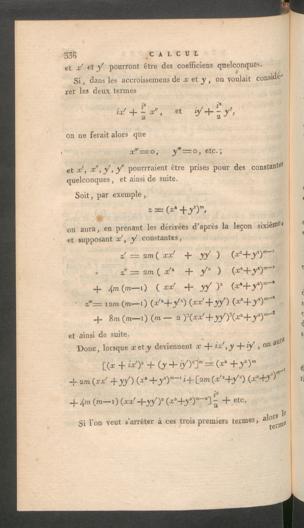 336 CALCUL
et x′ et y′ pourront être des coefficiens quelconques.
Si, dans les accroissemens de x et y, on voulait considé-
rer les deux termes
ix′ + i²/2 x″, et iy′ + i²/2 y″,
on ne ferait alors que
x‴=0, y‴=0, etc.;
et x′, x″, y′, y″ pourrraient être prises pour des constantes
quelconques, et ainsi de suite.
Soit, par exemple,
z = (x²+y²)ᵐ,
on aura, en prenant les dérivées d'après la leçon sixième,
et supposant x′, y′ constantes,
z′ = 2m ( xx′ + yy′ ) (x²+y²)ᵐ⁻¹
z″ = 2m ( x′² + y′² ) (x²+y²)ᵐ⁻¹
+ 4m (m—1) ( xx′ + yy′ )² (x²+y²)ᵐ⁻²
z‴ = 12m (m—1) (x′²+y′²) (xx′+yy′) (x²+y²)ᵐ⁻²
+ 8m (m—1) (m — 2 )(xx′+yy′)³(x²+y²)ᵐ⁻³
et ainsi de suite.
Donc, lorsque x et y deviennent x + ix′, y + iy′, on aura
[(x + ix′)² + (y + iy′)²]ᵐ = (x²+y²)ᵐ
+2m (xx′+yy′)(x²+y²)ᵐ⁻¹ i+[2m (x′²+y′²) (x²+y²)ᵐ⁻¹
+4m (m—1) (xx′+yy′)² (x²+y²)ᵐ⁻²] i²/2 + etc.
Si l'on veut s'arrêter à ces trois premiers termes, alors le
terme